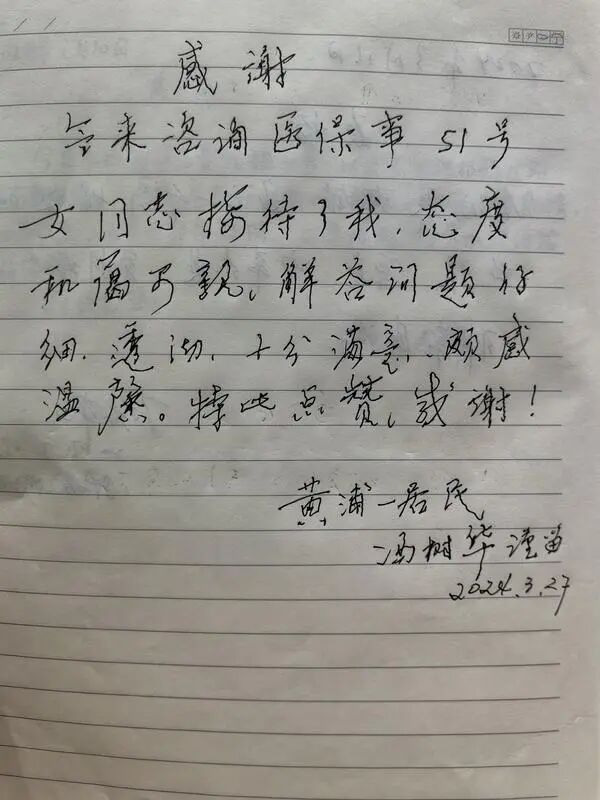 感谢
今来咨询医保事51号
女同志接待了我,态度
和蔼可親、解答问题仔
细、透沏,十分满意,颇感
温馨。特此点赞,感谢!
黄浦一居民
冯树华谨留
2024.3.27